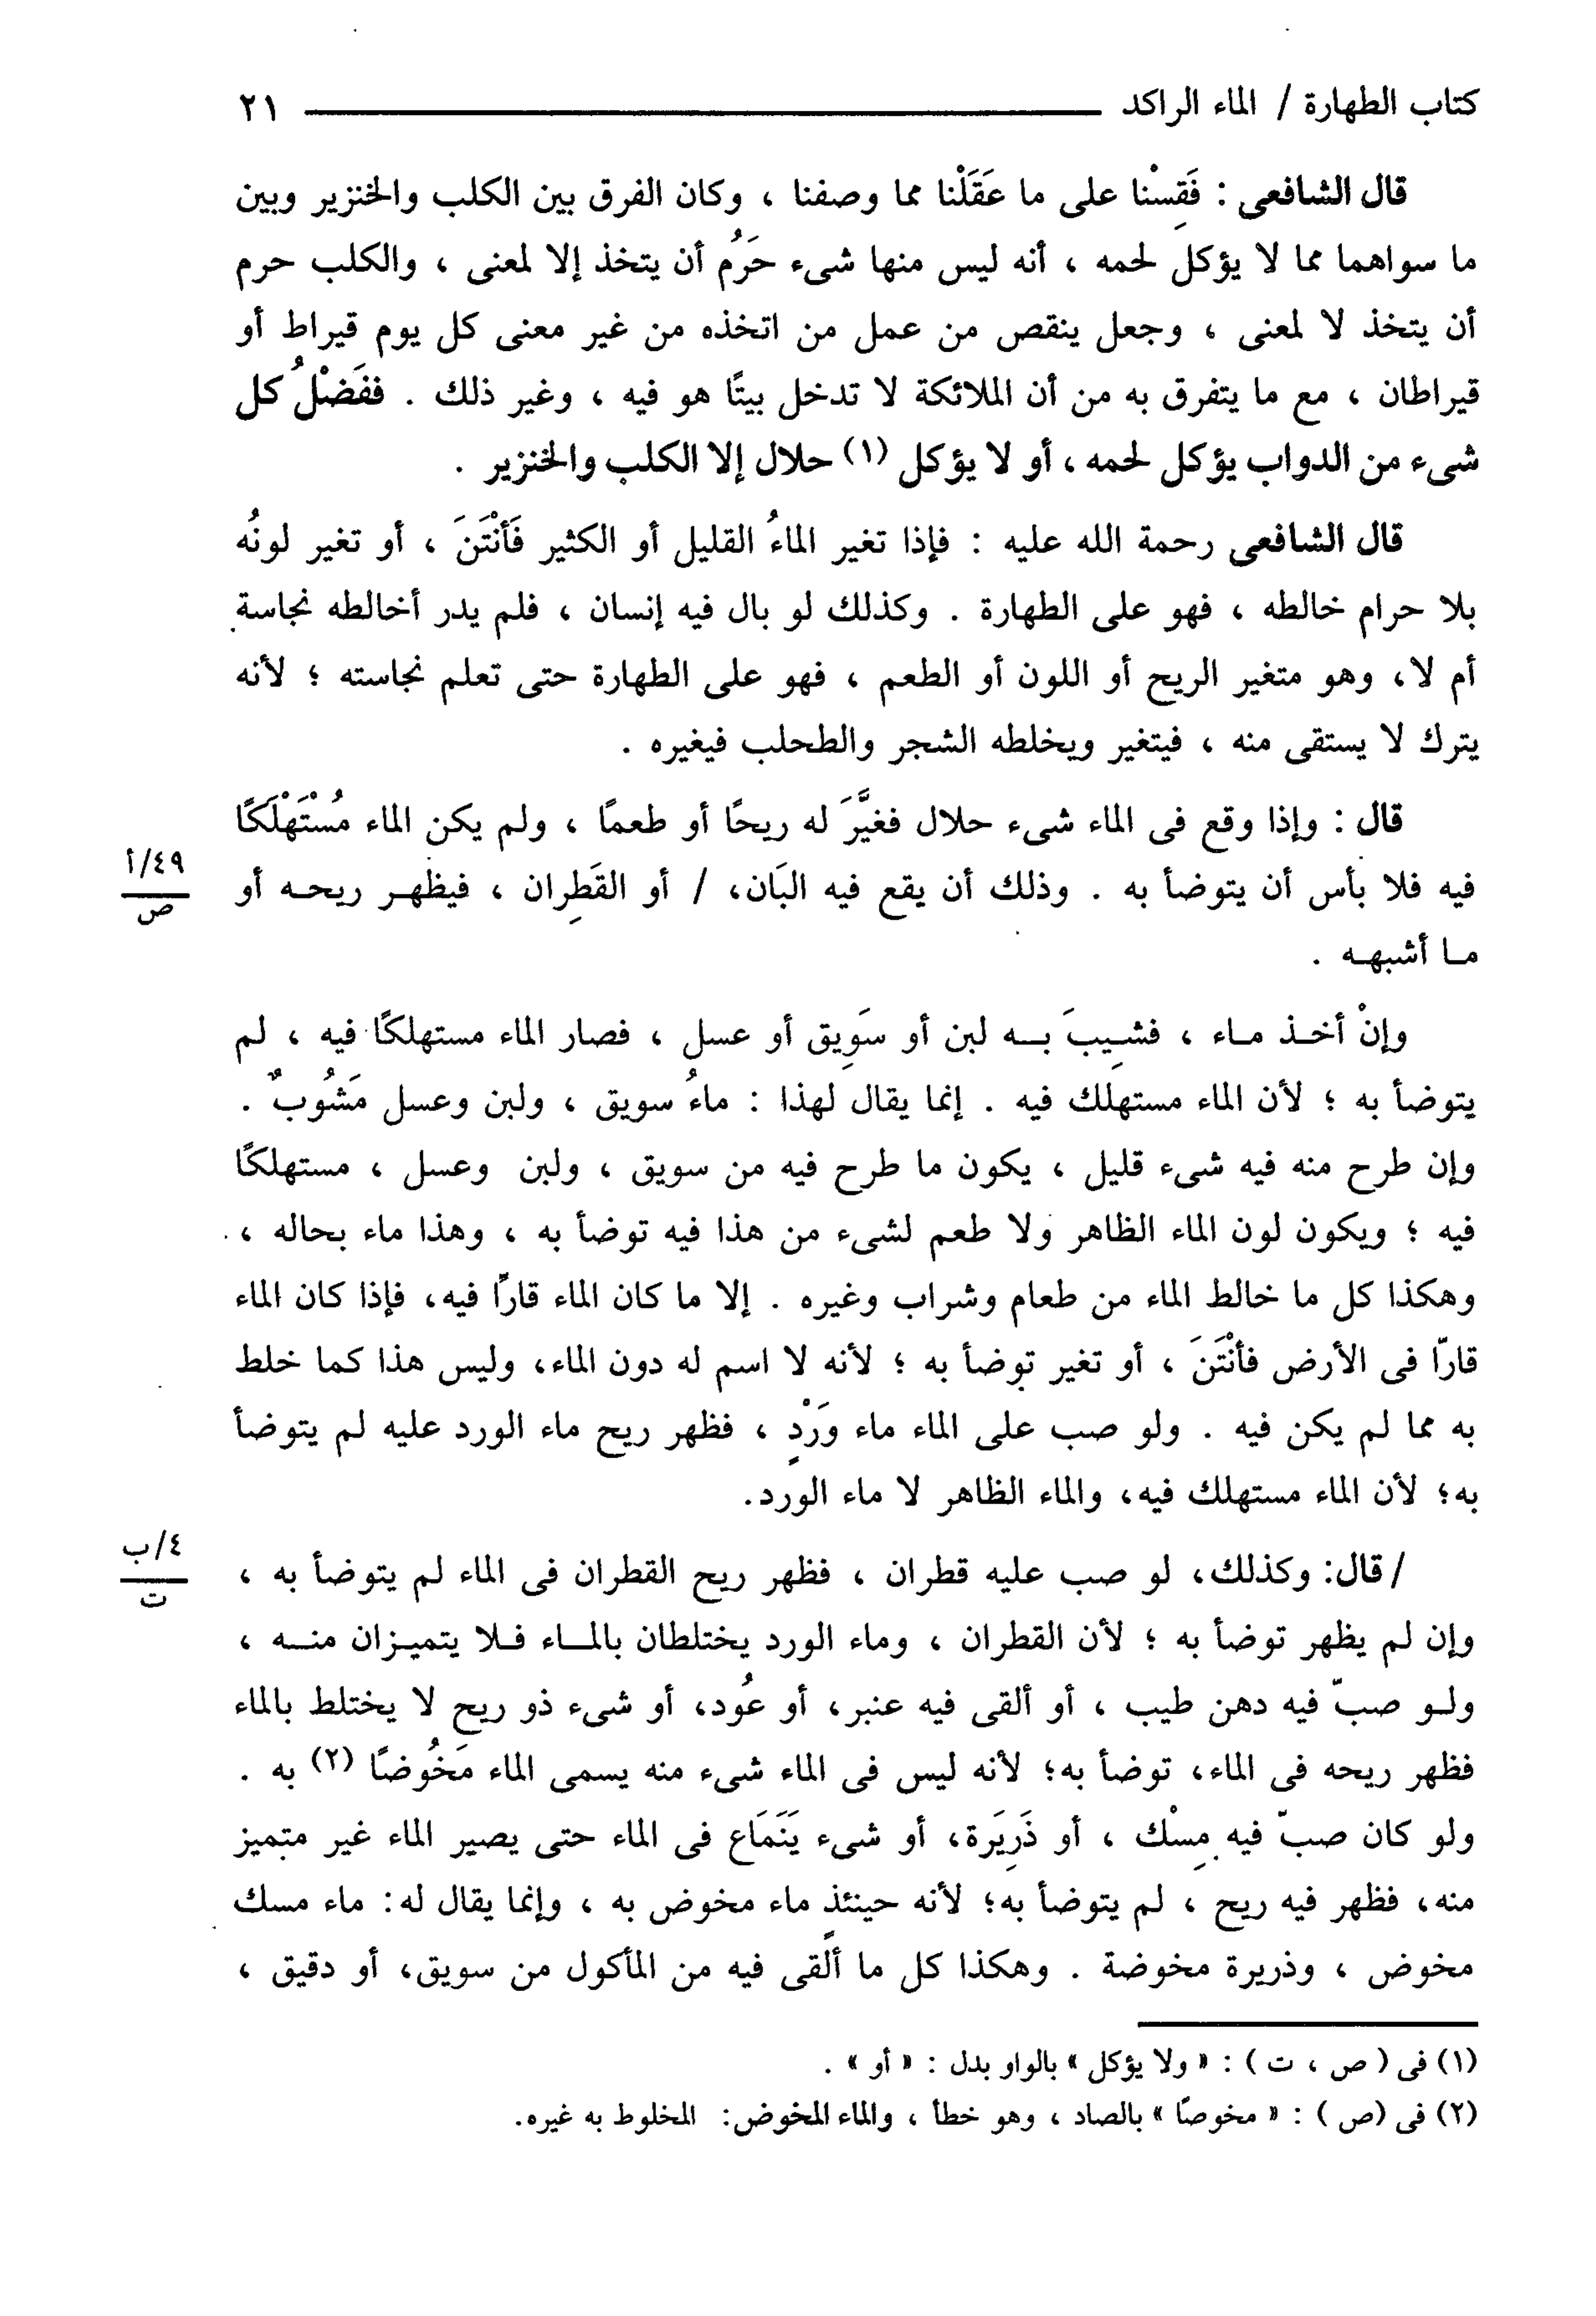 كتاب الطهارة / الماء الراكد ــــــــــــــــــــ ٢١
قال الشافعى : فَقِسْنا على ما عَقَلْنا مما وصفنا ، وكان الفرق بين الكلب والخنزير وبين
ما سواهما مما لا يؤكل لحمه ، أنه ليس منها شىء حَرُم أن يتخذ إلا لمعنى ، والكلب حرم
أن يتخذ لا لمعنى ، وجعل ينقص من عمل من اتخذه من غير معنى كل يوم قيراط أو
قيراطان ، مع ما يتفرق به من أن الملائكة لا تدخل بيتًا هو فيه ، وغير ذلك . ففَضْلُ كل
شىء من الدواب يؤكل لحمه ، أو لا يؤكل (١) حلال إلا الكلب والخنزير .
قال الشافعى رحمة الله عليه : فإذا تغير الماءُ القليل أو الكثير فَأَنْتَنَ ، أو تغير لونُه
بلا حرام خالطه ، فهو على الطهارة . وكذلك لو بال فيه إنسان ، فلم يدر أخالطه نجاسة
أم لا، وهو متغير الريح أو اللون أو الطعم ، فهو على الطهارة حتى تعلم نجاسته ؛ لأنه
يترك لا يستقى منه ، فيتغير ويخلطه الشجر والطحلب فيغيره .
قال : وإذا وقع فى الماء شىء حلال فغيَّرَ له ريحًا أو طعمًا ، ولم يكن الماء مُسْتَهْلَكًا
فيه فلا بأس أن يتوضأ به . وذلك أن يقع فيه البَان، / أو القَطِران ، فيظهر ريحه أو
٤٩/أ
ص
ما أشبهه .
وإنْ أخذ ماء ، فشِيبَ به لبن أو سَوِيق أو عسل ، فصار الماء مستهلكًا فيه ، لم
يتوضأ به ؛ لأن الماء مستهلك فيه . إنما يقال لهذا : ماءُ سويق ، ولبن وعسل مَشُوبٌ .
وإن طرح منه فيه شىء قليل ، يكون ما طرح فيه من سويق ، ولبن وعسل ، مستهلكًا
فيه ؛ ويكون لون الماء الظاهر ولا طعم لشىء من هذا فيه توضأ به ، وهذا ماء بحاله ،
وهكذا كل ما خالط الماء من طعام وشراب وغيره . إلا ما كان الماء قارّا فيه، فإذا كان الماء
قارّا فى الأرض فأَنْتَنَ ، أو تغير توضأ به ؛ لأنه لا اسم له دون الماء، وليس هذا كما خلط
به مما لم يكن فيه . ولو صب على الماء ماء وَرْدٍ ، فظهر ريح ماء الورد عليه لم يتوضأ
به؛ لأن الماء مستهلك فيه، والماء الظاهر لا ماء الورد.
/ قال: وكذلك، لو صب عليه قطران ، فظهر ريح القطران فى الماء لم يتوضأ به ،
٤/ب
ت
وإن لم يظهر توضأ به ؛ لأن القطران ، وماء الورد يختلطان بالماء فلا يتميزان منه ،
ولو صبّ فيه دهن طيب ، أو ألقى فيه عنبر، أو عُود، أو شىء ذو ريح لا يختلط بالماء
فظهر ريحه فى الماء، توضأ به؛ لأنه ليس فى الماء شىء منه يسمى الماء مَخُوضًا (٢) به .
ولو كان صبّ فيه مِسْك ، أو ذَرِيَرة، أو شىء يَنَمَاع فى الماء حتى يصير الماء غير متميز
منه، فظهر فيه ريح ، لم يتوضأ به؛ لأنه حينئذٍ ماء مخوض به ، وإنما يقال له: ماء مسك
مخوض ، وذريرة مخوضة . وهكذا كل ما ألقى فيه من المأكول من سويق، أو دقيق ،
(١) فى ( ص ، ت ) : « ولا يؤكل » بالواو بدل : « أو » .
(٢) فى (ص ) : « مخوصًا » بالصاد ، وهو خطأ ، والماء المخوض: المخلوط به غيره.